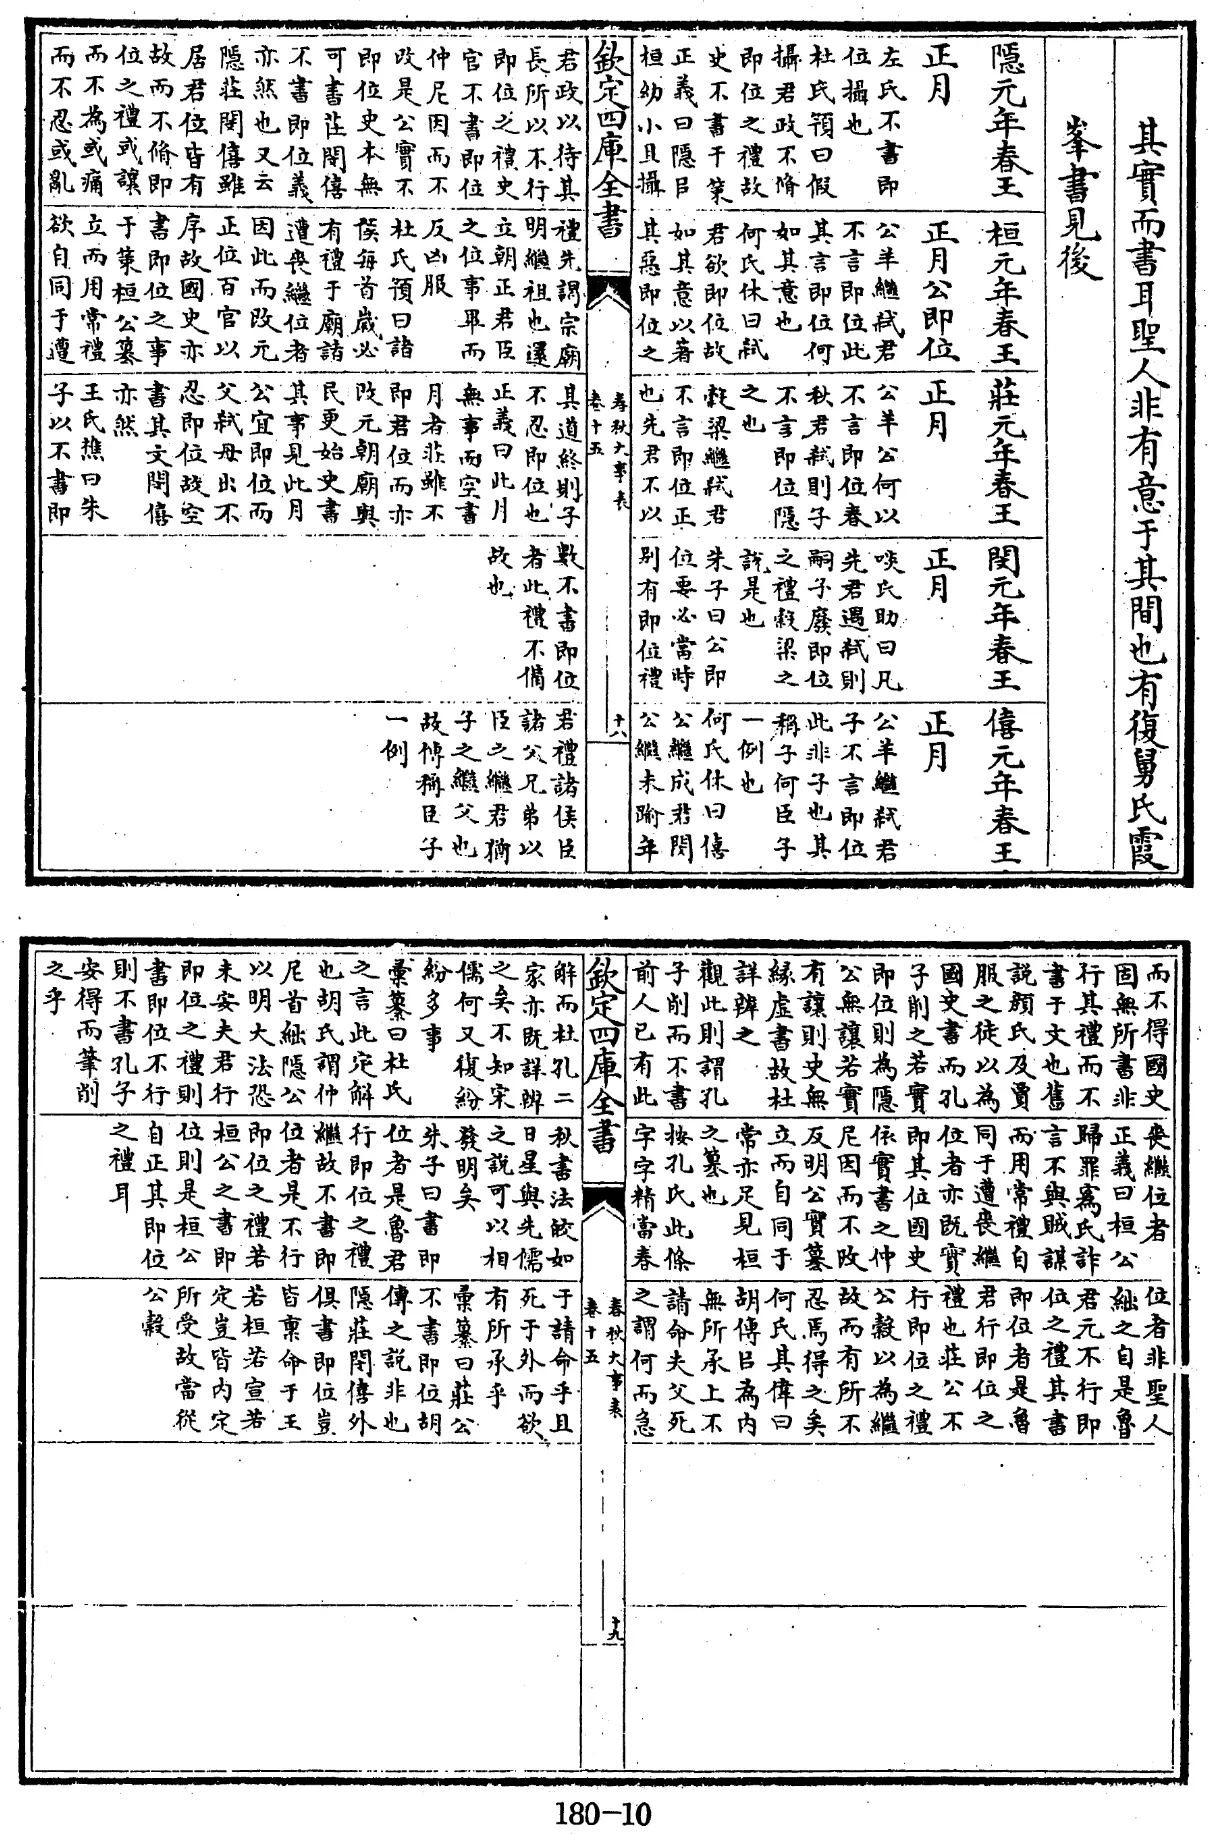 其實而書耳聖人非有意于其間也有復舅氏霞
峯書見後
隱元年春王
正月
左氏不書即
位攝也
杜氏預曰假
攝君政不脩
即位之禮故
史不書于策
正義曰隱以
桓幼小且攝
桓元年春王
正月公即位
公羊繼弒君
不言即位此
其言即位何
如其意也
何氏休曰弒
君欲即位故
如其意以著
其惡即位之
莊元年春王
正月
公羊公何以
不言即位春
秋君弒則子
不言即位隱
之也
穀梁繼弒君
不言即位正
也先君不以
閔元年春王
正月
啖氏助曰凡
先君遇弒則
嗣子廢即位
之禮穀梁之
說是也
朱子曰公即
位要必當時
別有即位禮
僖元年春王
正月
公羊繼弒君
子不言即位
此非子也其
稱子何臣子
一例也
何氏休曰僖
公繼成君閔
公繼未踰年
欽定四庫全書
春秋大事表
卷十五
十八
君政以待其
長所以不行
即位之禮史
官不書即位
仲尼因而不
改是公實不
即位史本無
可書莊閔僖
不書即位義
亦然也又云
隱莊閔僖雖
居君位皆有
故而不脩即
位之禮或讓
而不為或痛
而不忍或亂
禮先謁宗廟
明繼祖也還
立朝正君臣
之位事畢而
反凶服
杜氏預曰諸
侯每首歲必
有禮于廟諸
遭喪繼位者
因此而改元
正位百官以
序故國史亦
書即位之事
于策桓公簒
立而用常禮
欲自同于遭
其道終則子
不忍即位也
正義曰此月
無事而空書
月者莊雖不
即君位而亦
改元朝廟與
民更始史書
其事見此月
公宜即位而
父弒母出不
忍即位故空
書其文閔僖
亦然
王氏樵曰朱
子以不書即
數不書即位
者此禮不備
故也
君禮諸侯臣
諸父兄弟以
臣之繼君猶
子之繼父也
故傳稱臣子
一例
而不得國史
固無所書非
行其禮而不
書于文也舊
說顏氏及賈
服之徒以為
國史書而孔
子削之若實
即位則為隱
公無讓若實
有讓則史無
緣虛書故杜
詳辨之
觀此則謂孔
子削而不書
前人已有此
喪繼位者
正義曰桓公
歸罪寪氏詐
言不與賊謀
而用常禮自
同于遭喪繼
位者亦既實
即其位國史
依實書之仲
尼因而不改
反明公實簒
立而自同于
常亦足見桓
之簒也
按孔氏此條
字字精當春
位者非聖人
絀之自是魯
君元不行即
位之禮其書
即位者是魯
君行即位之
禮也莊公不
行即位之禮
公穀以為繼
故而有所不
忍焉得之矣
何氏其偉曰
胡傳以為內
無所承上不
請命夫父死
之謂何而急
欽定四庫全書
春秋大事表
卷十五
十九
解而杜孔二
家亦既詳辨
之矣不知宋
儒何又復紛
紛多事
彚纂曰杜氏
之言此定解
也胡氏謂仲
尼首絀隱公
以明大法恐
未安夫君行
即位之禮則
書即位不行
則不書孔子
安得而筆削
之乎
秋書法皎如
日星與先儒
之說可以相
發明矣
朱子曰書即
位者是魯君
行即位之禮
繼故不書即
位者是不行
即位之禮若
桓公之書即
位則是桓公
自正其即位
之禮耳
于請命乎且
死于外而欲
有所承乎
彚纂曰莊公
不書即位胡
傳之說非也
隱莊閔僖外
俱書即位豈
皆稟命于王
若桓若宣若
定豈皆內定
所受故當從
公穀
180-10